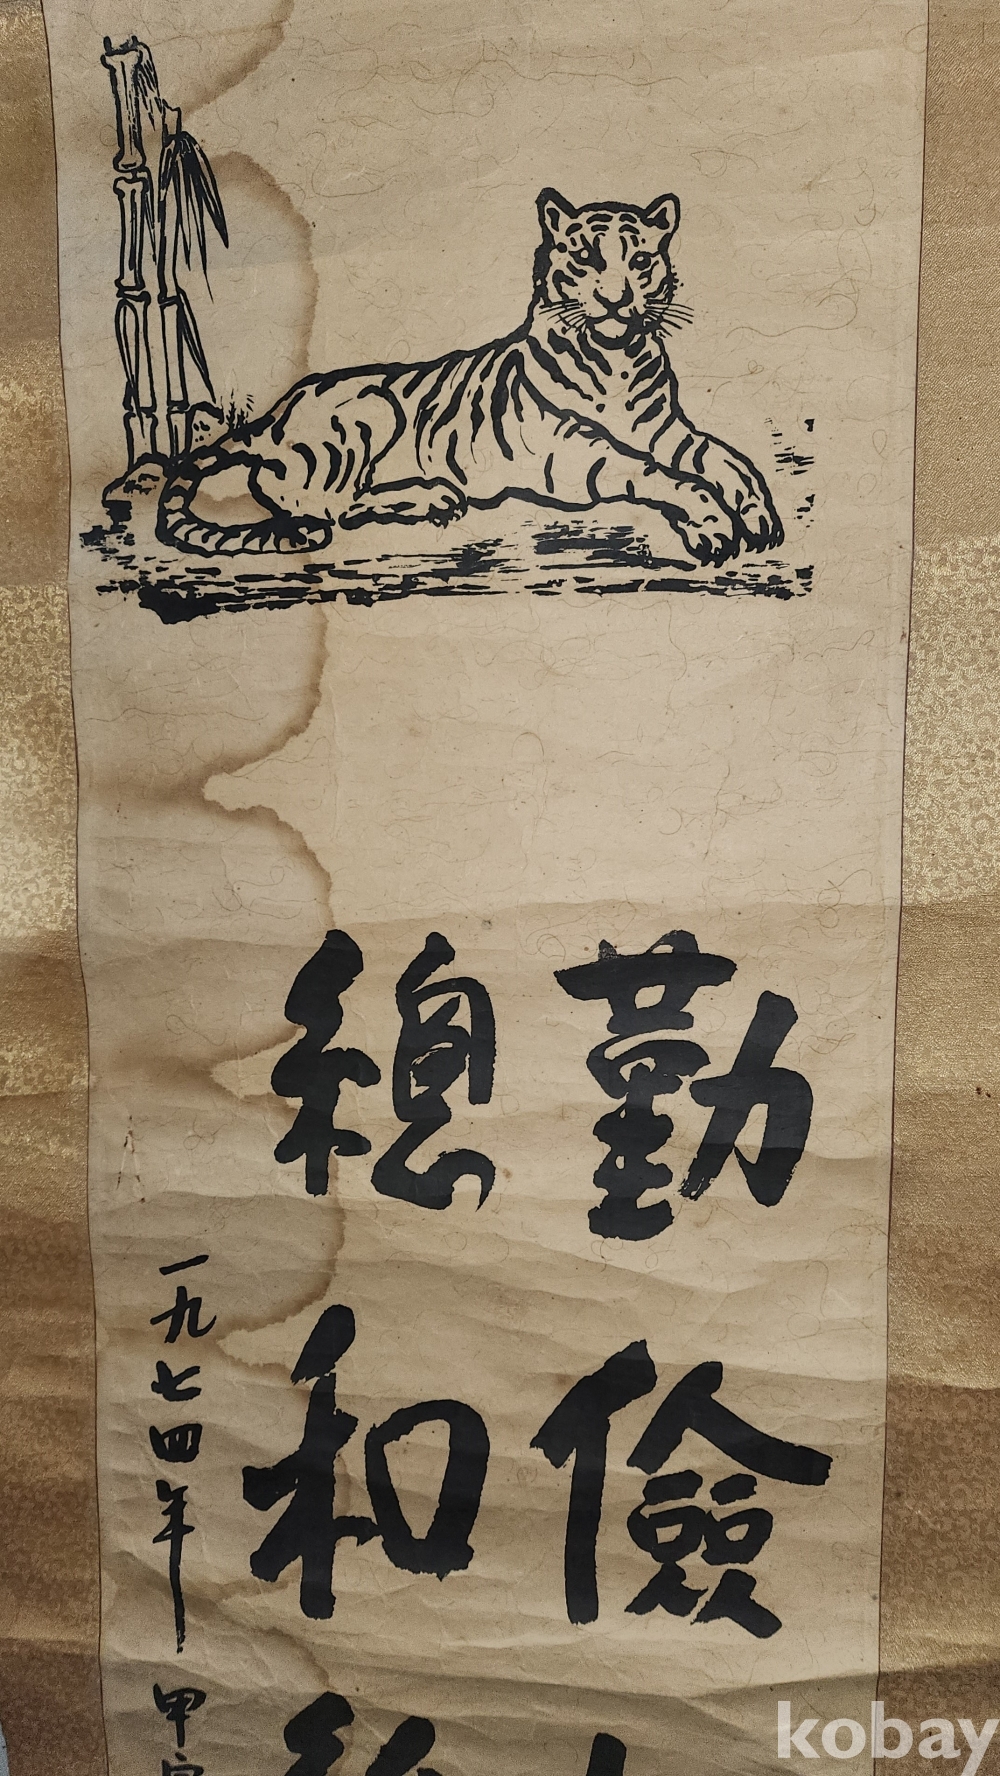 勤儉
總和
一九七四年 甲寅
kobay